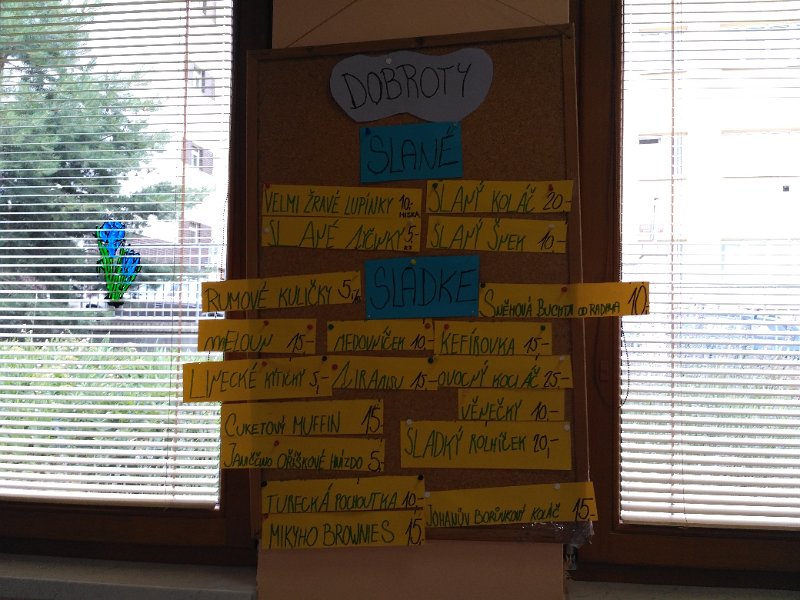 DOBROTY
SLANÉ
VELMI ŽRAVÉ LUPÍNKY 10,-
MISKA
SLANÝ KOLÁČ 20,-
SLANÉ 5,-
SLANÝ ŠNEK 10,-
SLADKÉ
RUMOVÉ KULIČKY 5,-
SNĚHOVÁ BUCHTA OD RADAMA 10,-
MELOUN 15,-
MEDOVNÍČEK 10,-
KEFÍROVKA 15,-
LINECKÉ KYTIČKY 5,-
TIRAMISU 15,-
OVOCNÝ KOLÁČ 25,-
VĚNEČKY 10,-
CUKETOVÝ MUFFIN 15,-
SLADKÝ ROHLÍČEK 20,-
JANIČČINO OŘÍŠKOVÉ HNÍZDO 5,-
TURECKÁ POCHOUTKA 10,-
JOHANŮV BORŮVKOVÝ KOLÁČ 15,-
MIKYHO BROWNIES 15,-